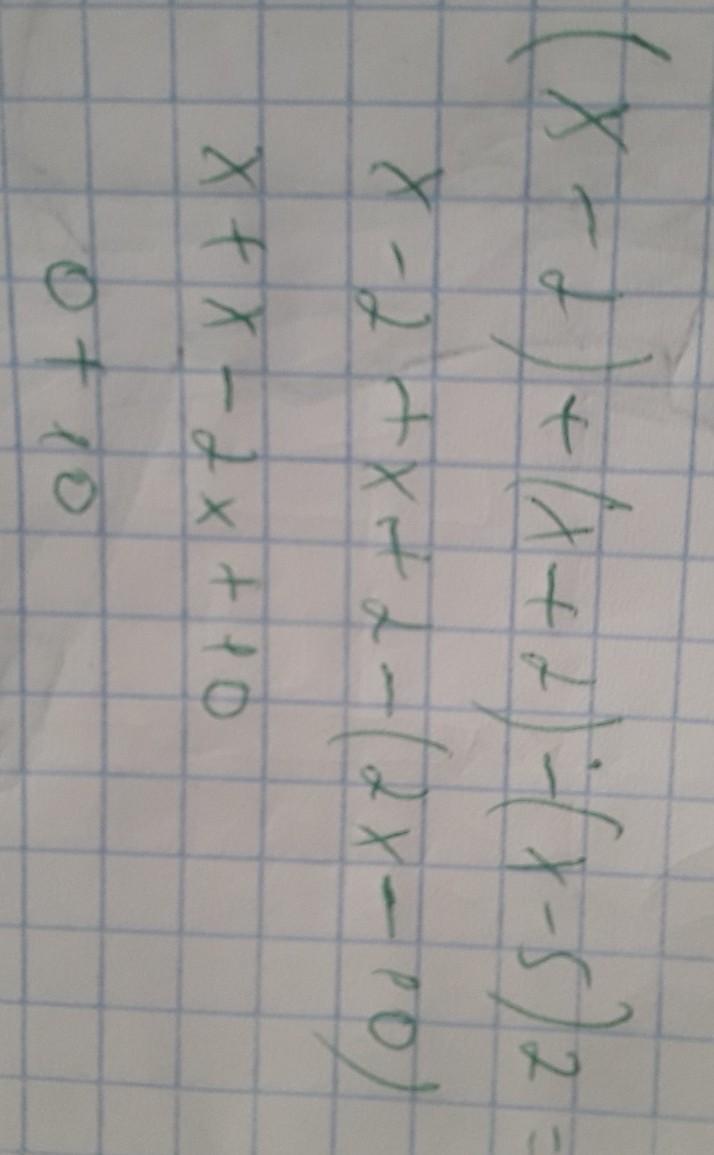 (x - 2) + (x + 2) - (x - 5) 2 =
x - 2 + x + 2 - (2x - 10)
x + x - 2x + 10
0 + 10